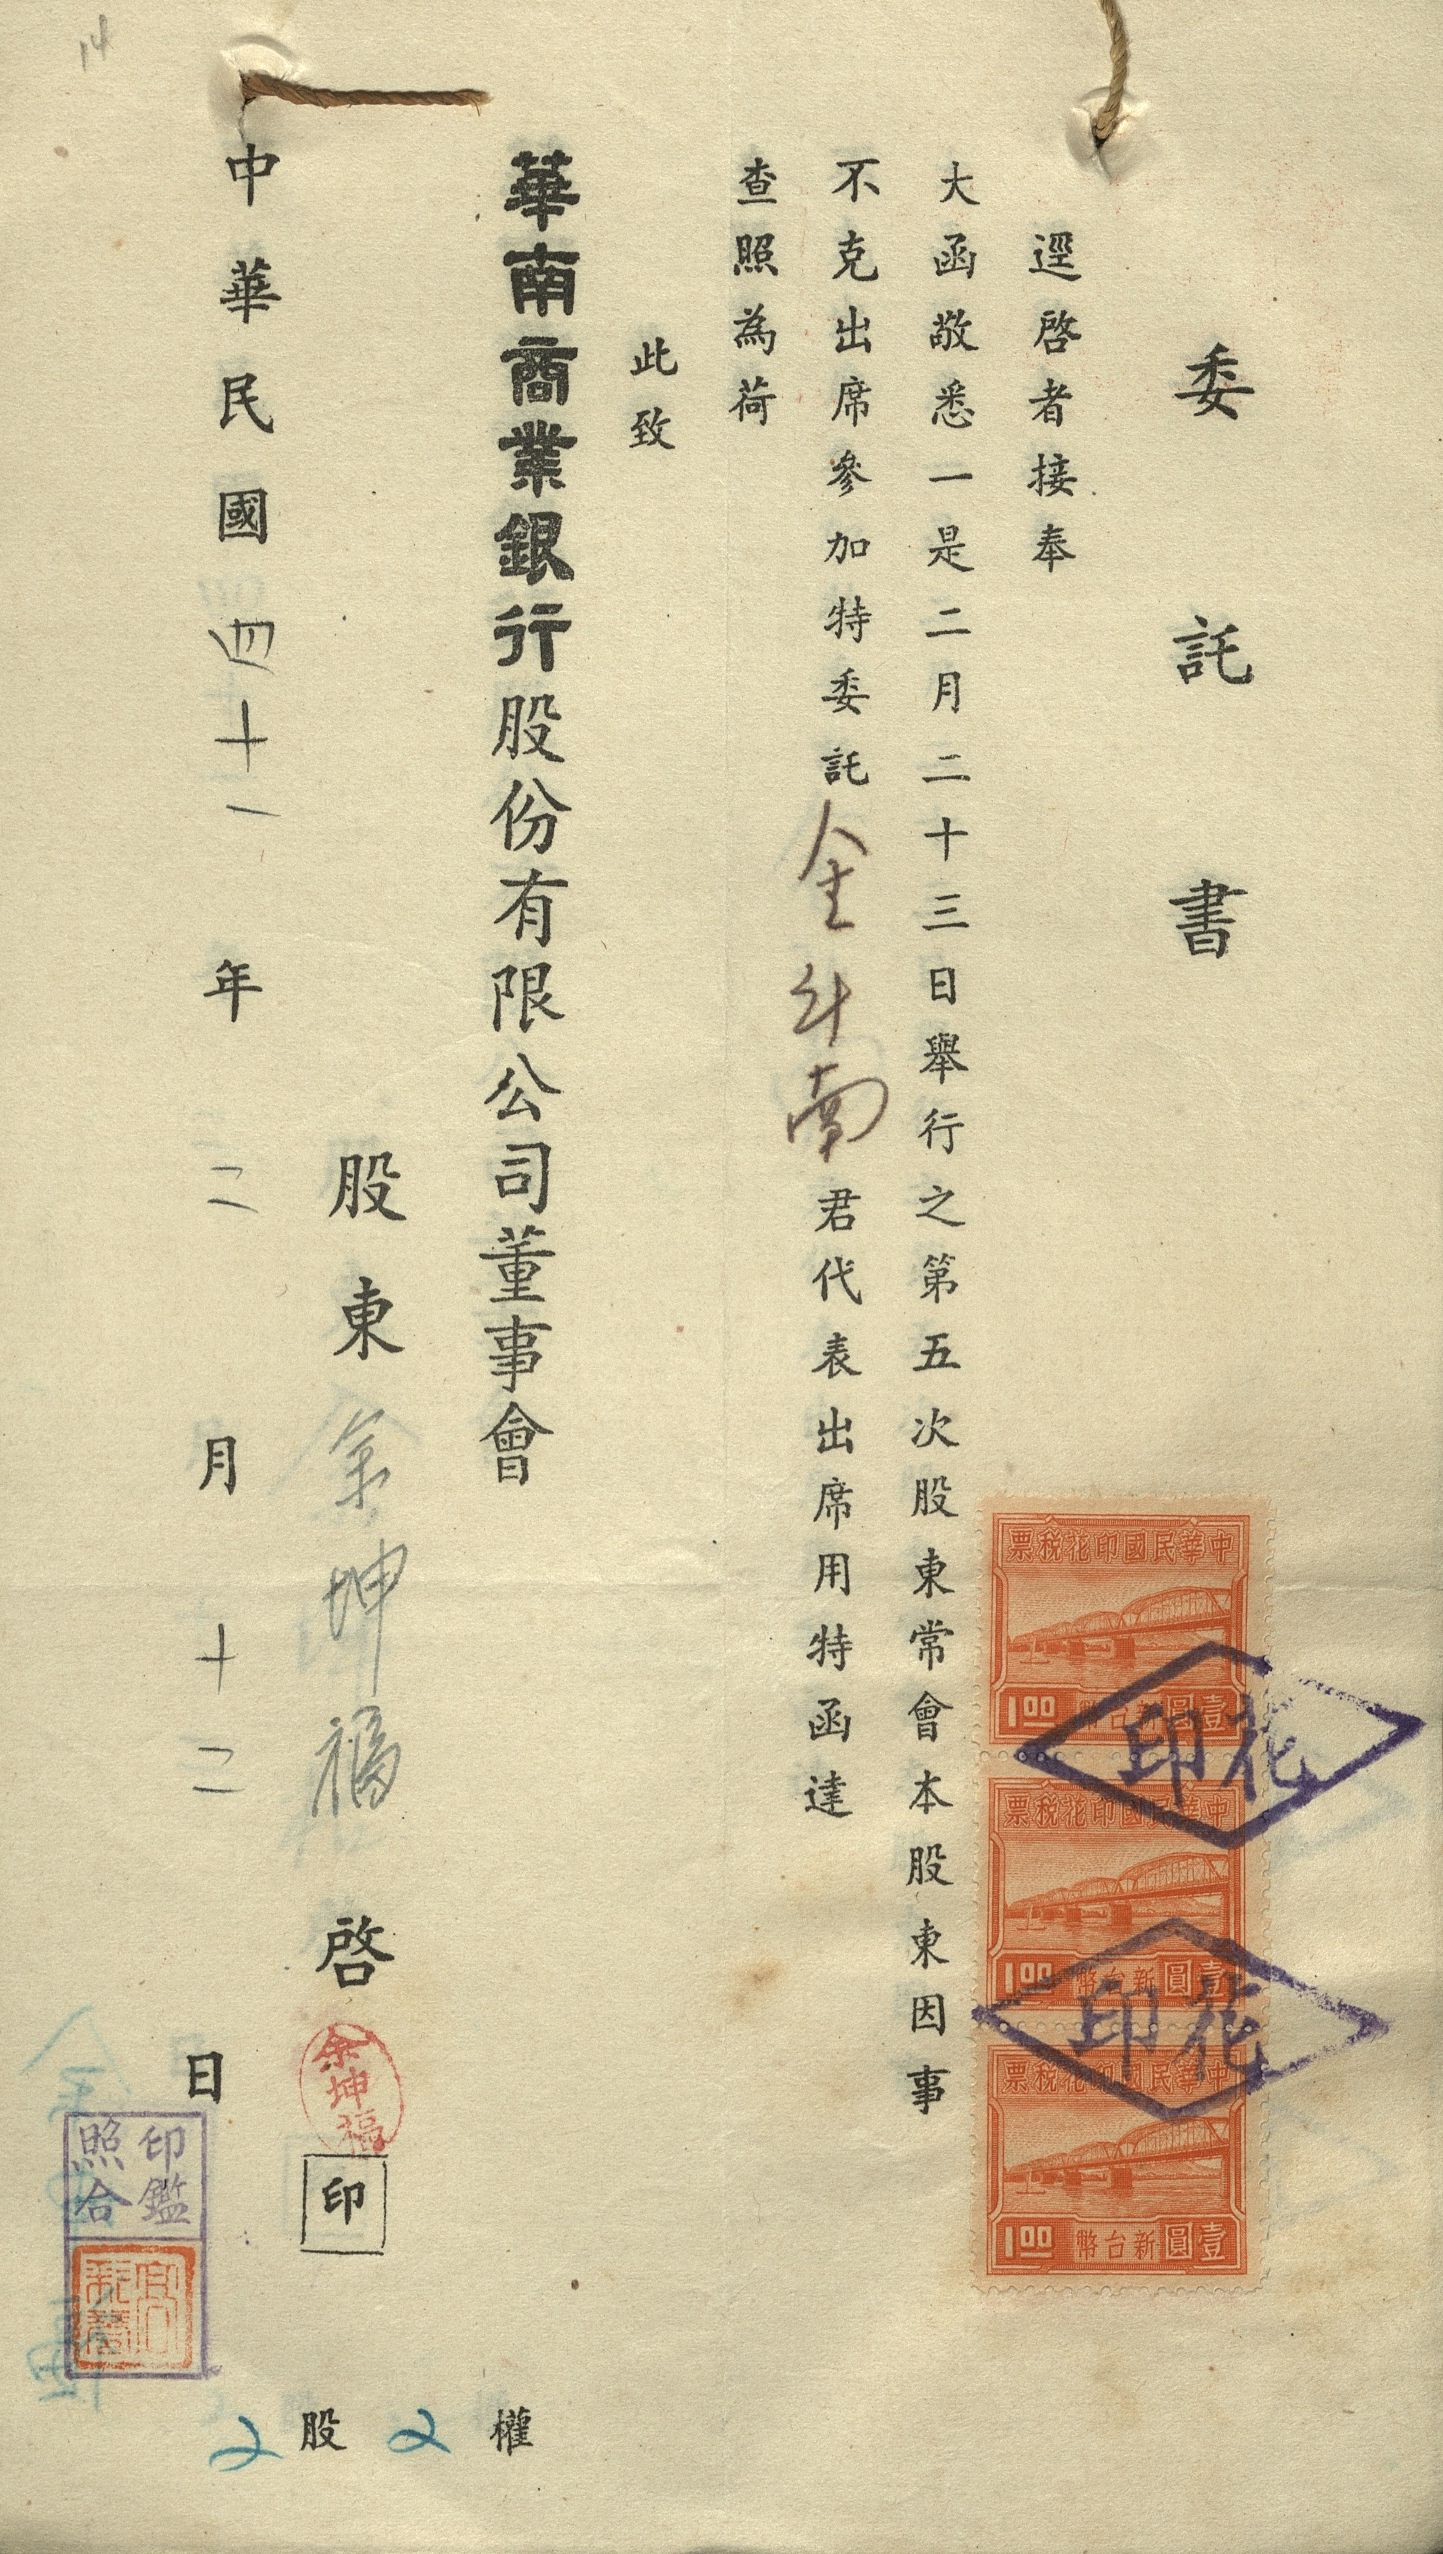 委託書
逕啓者接奉
大函敬悉一是二月二十三日舉行之第五次股東常會本股東因事
不克出席參加特委託金斗南君代表出席用特函達
查照為荷
此致
華南商業銀行股份有限公司董事會
股東余坤福啓
余坤福
印
中華民國四十一年二月十二日
2股2權
印鑑
照合
中華民國印花稅票
壹圓新台幣
1.00
中華民國印花稅票
壹圓新台幣
1.00
中華民國印花稅票
壹圓新台幣
1.00
花印
花印
14